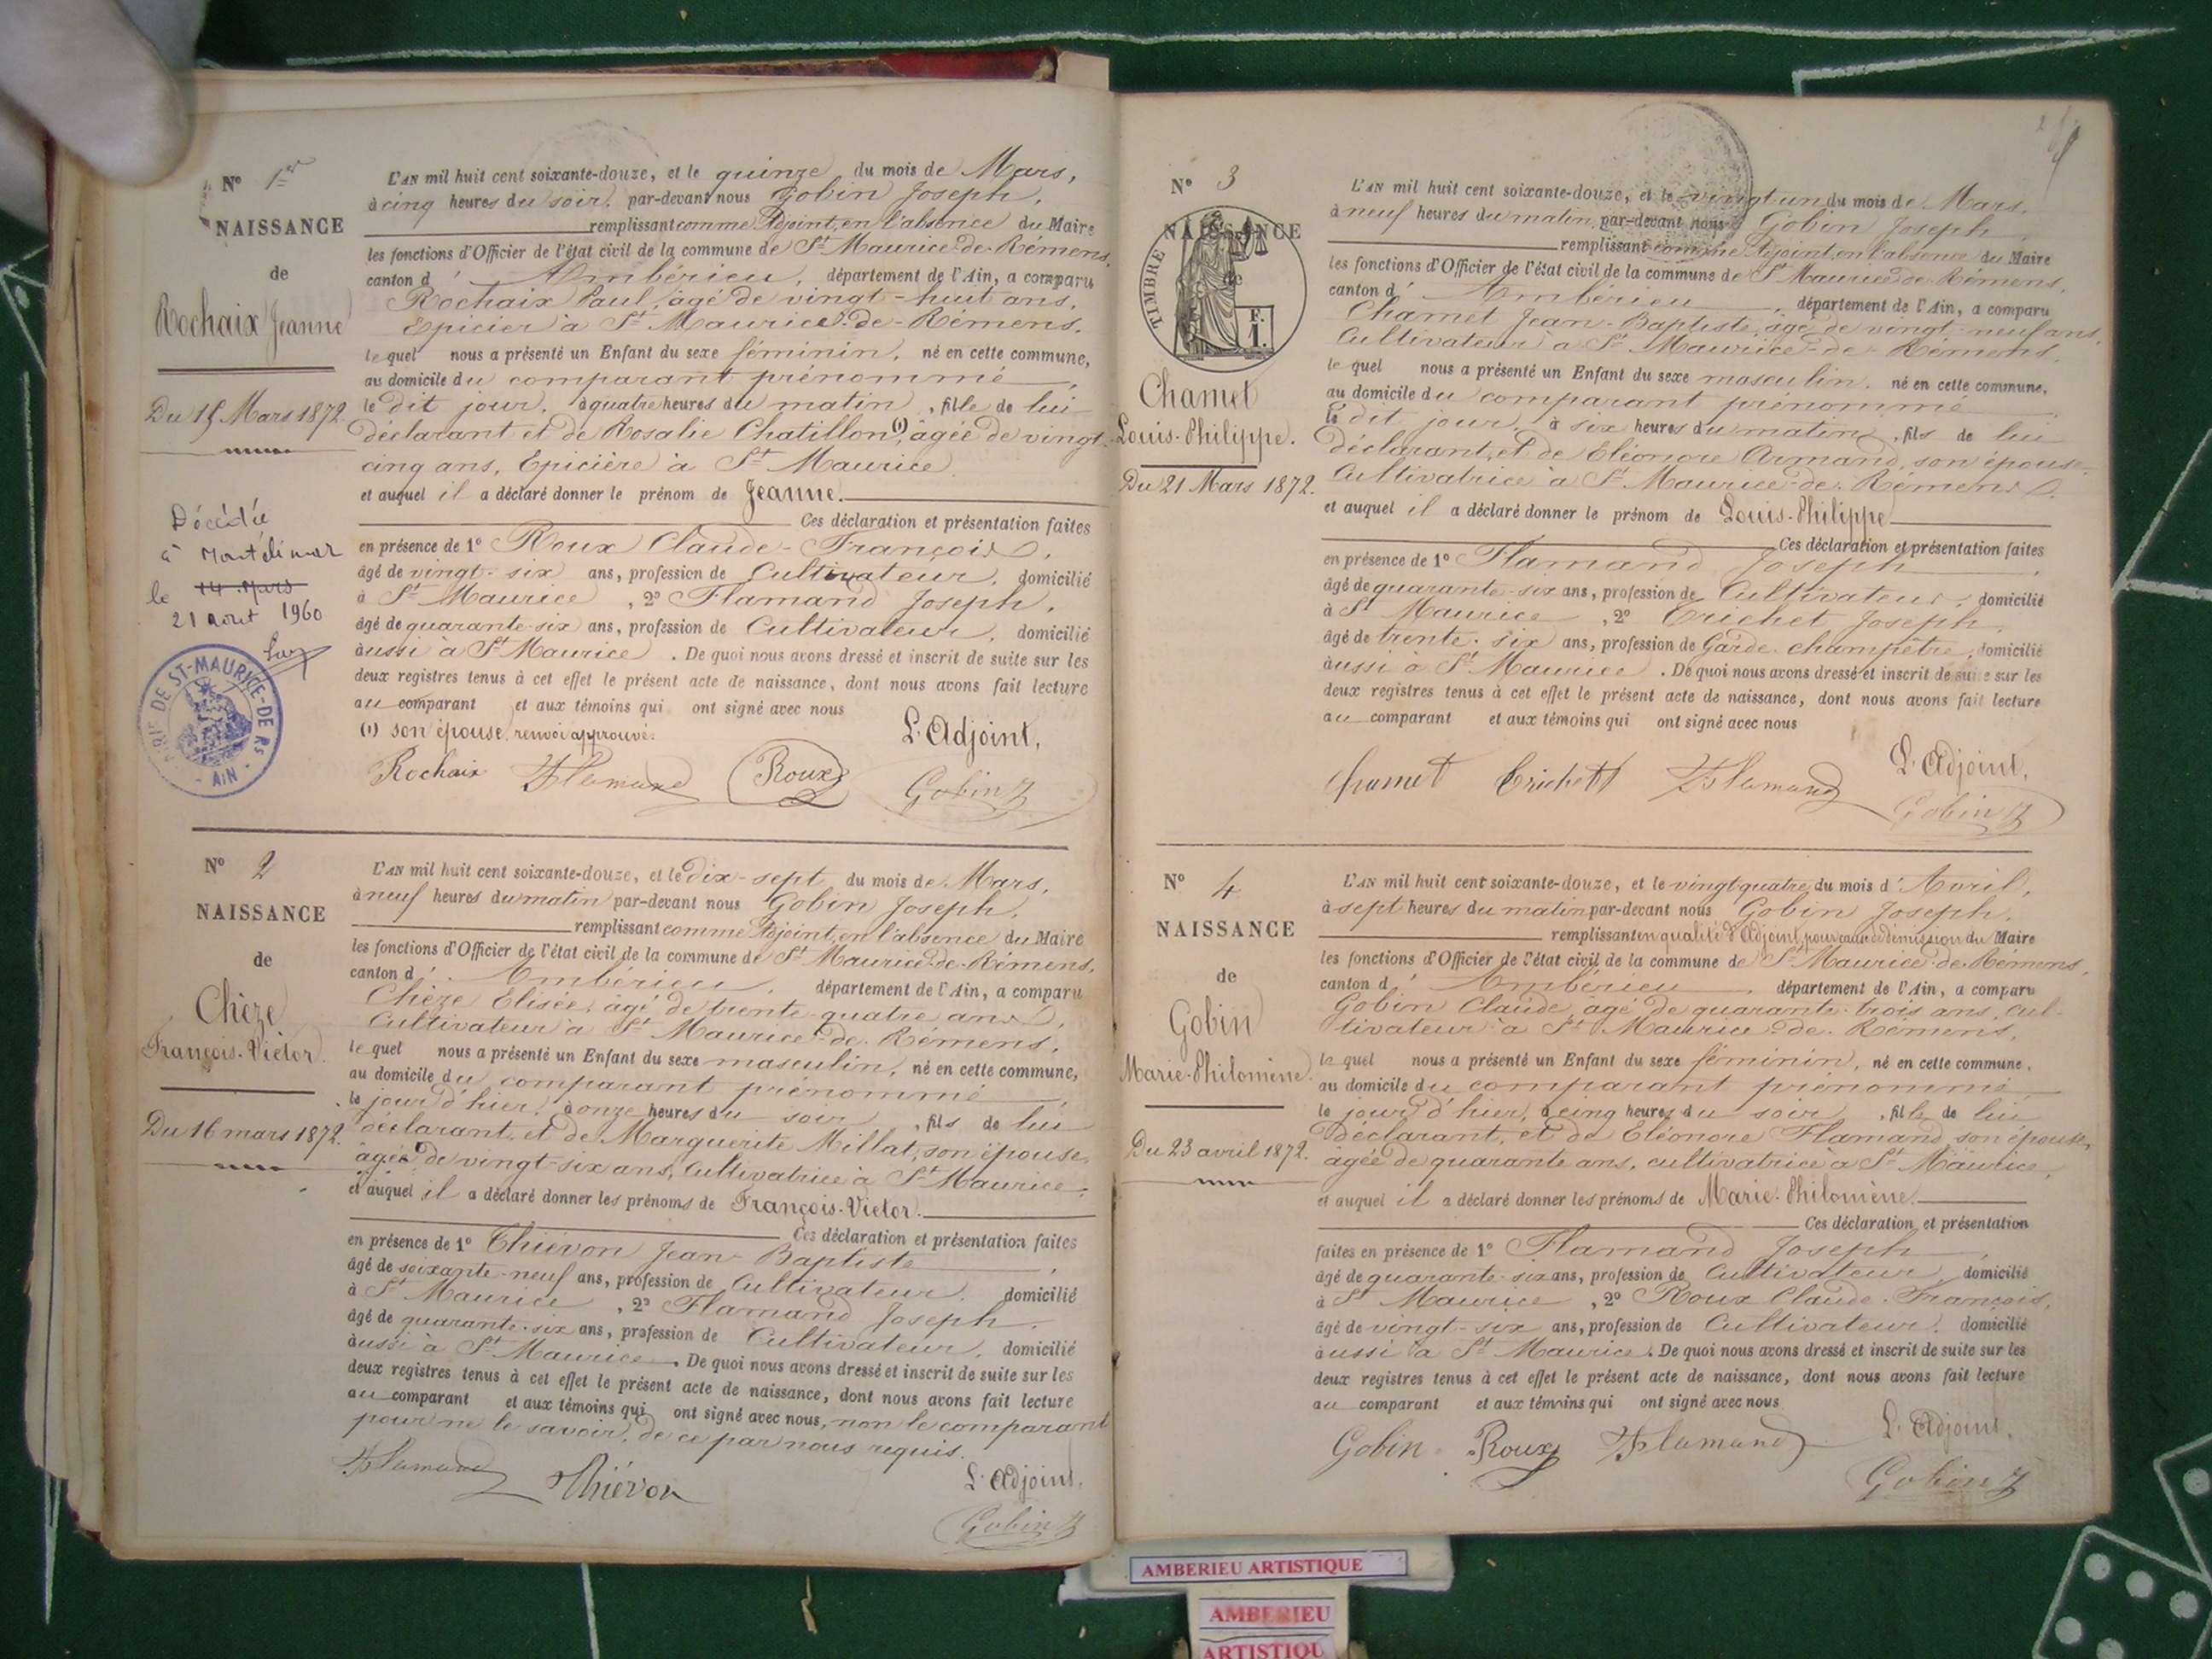 N° 1er
NAISSANCE
de
Rochaix Jeanne
Du 15 Mars 1872.
Décédée
à Montélimar
le 14 Mars
21 aout 1960
MAIRIE DE ST-MAURICE-DE-RS
- AIN -
L'AN mil huit cent soixante-douze, et le quinze du mois de Mars,
à cinq heures du soir, par-devant nous Gobin Joseph,
remplissant comme Adjoint, en l'absence du Maire
les fonctions d'Officier de l'état civil de la commune de St Maurice-de-Rémens,
canton d'Ambérieu, département de l'Ain, a comparu
Rochaix Paul, âgé de vingt-huit ans,
Epicier à St Maurice-de-Rémens.
lequel nous a présenté un Enfant du sexe féminin, né en cette commune,
au domicile du comparant prénommé,
le dit jour, à quatre heures du matin, fille de lui
déclarant et de Rosalie Chatillon (1), âgée de vingt-
cinq ans, Epicière à St Maurice
et auquel il a déclaré donner le prénom de Jeanne.
Ces déclaration et présentation faites
en présence de 1° Roux Claude-François,
âgé de vingt-six ans, profession de Cultivateur, domicilié
à St Maurice, 2° Flamand Joseph,
âgé de quarante-six ans, profession de Cultivateur, domicilié
aussi à St Maurice. De quoi nous avons dressé et inscrit de suite sur les
deux registres tenus à cet effet le présent acte de naissance, dont nous avons fait lecture
au comparant et aux témoins qui ont signé avec nous
(1) son épouse, renvoi approuvé.
L'Adjoint,
Rochaix Flamand Roux Gobin J
N° 2
NAISSANCE
de
Chèze
François-Victor.
Du 16 mars 1872.
L'AN mil huit cent soixante-douze, et le dix-sept du mois de Mars,
à neuf heures du matin par-devant nous Gobin Joseph,
remplissant comme Adjoint, en l'absence du Maire
les fonctions d'Officier de l'état civil de la commune de St Maurice-de-Rémens,
canton d'Ambérieu, département de l'Ain, a comparu
Chèze Elisée, âgé de trente-quatre ans,
Cultivateur à St Maurice-de-Rémens,
lequel nous a présenté un Enfant du sexe masculin, né en cette commune,
au domicile du comparant prénommé,
le jour d'hier, à onze heures du soir, fils de lui
déclarant, et de Marguerite Millat, son épouse,
âgée de vingt-six ans, Cultivatrice à St Maurice,
et auquel il a déclaré donner les prénoms de François-Victor.
Ces déclaration et présentation faites
en présence de 1° Thiévon Jean-Baptiste,
âgé de soixante-neuf ans, profession de Cultivateur, domicilié
à St Maurice, 2° Flamand Joseph,
âgé de quarante-six ans, profession de Cultivateur, domicilié
aussi à St Maurice. De quoi nous avons dressé et inscrit de suite sur les
deux registres tenus à cet effet le présent acte de naissance, dont nous avons fait lecture
au comparant et aux témoins qui ont signé avec nous, non le comparant
pour ne le savoir, de ce par nous requis.
Flamand Thiévon L'Adjoint,
Gobin J
N° 3
NAISSANCE
de
TIMBRE
F.
1.
Chamet
Louis-Philippe.
Du 21 Mars 1872.
L'AN mil huit cent soixante-douze, et le vingt un du mois de Mars,
à neuf heures du matin, par-devant nous Gobin Joseph
remplissant comme Adjoint, en l'absence du Maire
les fonctions d'Officier de l'état civil de la commune de St Maurice-de-Rémens,
canton d'Ambérieu, département de l'Ain, a comparu
Chamet Jean-Baptiste, âgé de vingt-neuf ans,
Cultivateur à St Maurice-de-Rémens,
lequel nous a présenté un Enfant du sexe masculin, né en cette commune,
au domicile du comparant prénommé
le dit jour, à six heures du matin, fils de lui
déclarant, et de Eléonore Armand, son épouse,
Cultivatrice à St Maurice-de-Rémens.
et auquel il a déclaré donner le prénom de Louis-Philippe
Ces déclaration et présentation faites
en présence de 1° Flamand Joseph,
âgé de quarante-six ans, profession de Cultivateur, domicilié
à St Maurice, 2° Crichet Joseph,
âgé de trente-six ans, profession de Garde-champêtre, domicilié
aussi à St Maurice. De quoi nous avons dressé et inscrit de suite sur les
deux registres tenus à cet effet le présent acte de naissance, dont nous avons fait lecture
au comparant et aux témoins qui ont signé avec nous
L'Adjoint,
Chamet Crichet Flamand Gobin J
N° 4
NAISSANCE
de
Gobin
Marie-Philomène.
Du 23 avril 1872.
L'AN mil huit cent soixante-douze, et le vingt-quatre du mois d'Avril,
à sept heures du matin par-devant nous Gobin Joseph,
remplissant en qualité d'Adjoint, pour cause de démission du Maire
les fonctions d'Officier de l'état civil de la commune de St Maurice-de-Rémens,
canton d'Ambérieu, département de l'Ain, a comparu
Gobin Claude, âgé de quarante-trois ans, Cul-
tivateur à St Maurice-de-Rémens,
lequel nous a présenté un Enfant du sexe féminin, né en cette commune,
au domicile du comparant prénommé
le jour d'hier, à cinq heures du soir, fille de lui
déclarant, et de Eléonore Flamand, son épouse,
âgée de quarante ans, cultivatrice à St Maurice,
et auquel il a déclaré donner les prénoms de Marie-Philomène.
Ces déclaration et présentation
faites en présence de 1° Flamand Joseph,
âgé de quarante-six ans, profession de Cultivateur, domicilié
à St Maurice, 2° Roux Claude-François,
âgé de vingt-six ans, profession de Cultivateur, domicilié
aussi à St Maurice. De quoi nous avons dressé et inscrit de suite sur les
deux registres tenus à cet effet le présent acte de naissance, dont nous avons fait lecture
au comparant et aux témoins qui ont signé avec nous
L'Adjoint,
Gobin Roux Flamand Gobin J
AMBERIEU ARTISTIQUE
AMBERIEU
ARTISTIQU